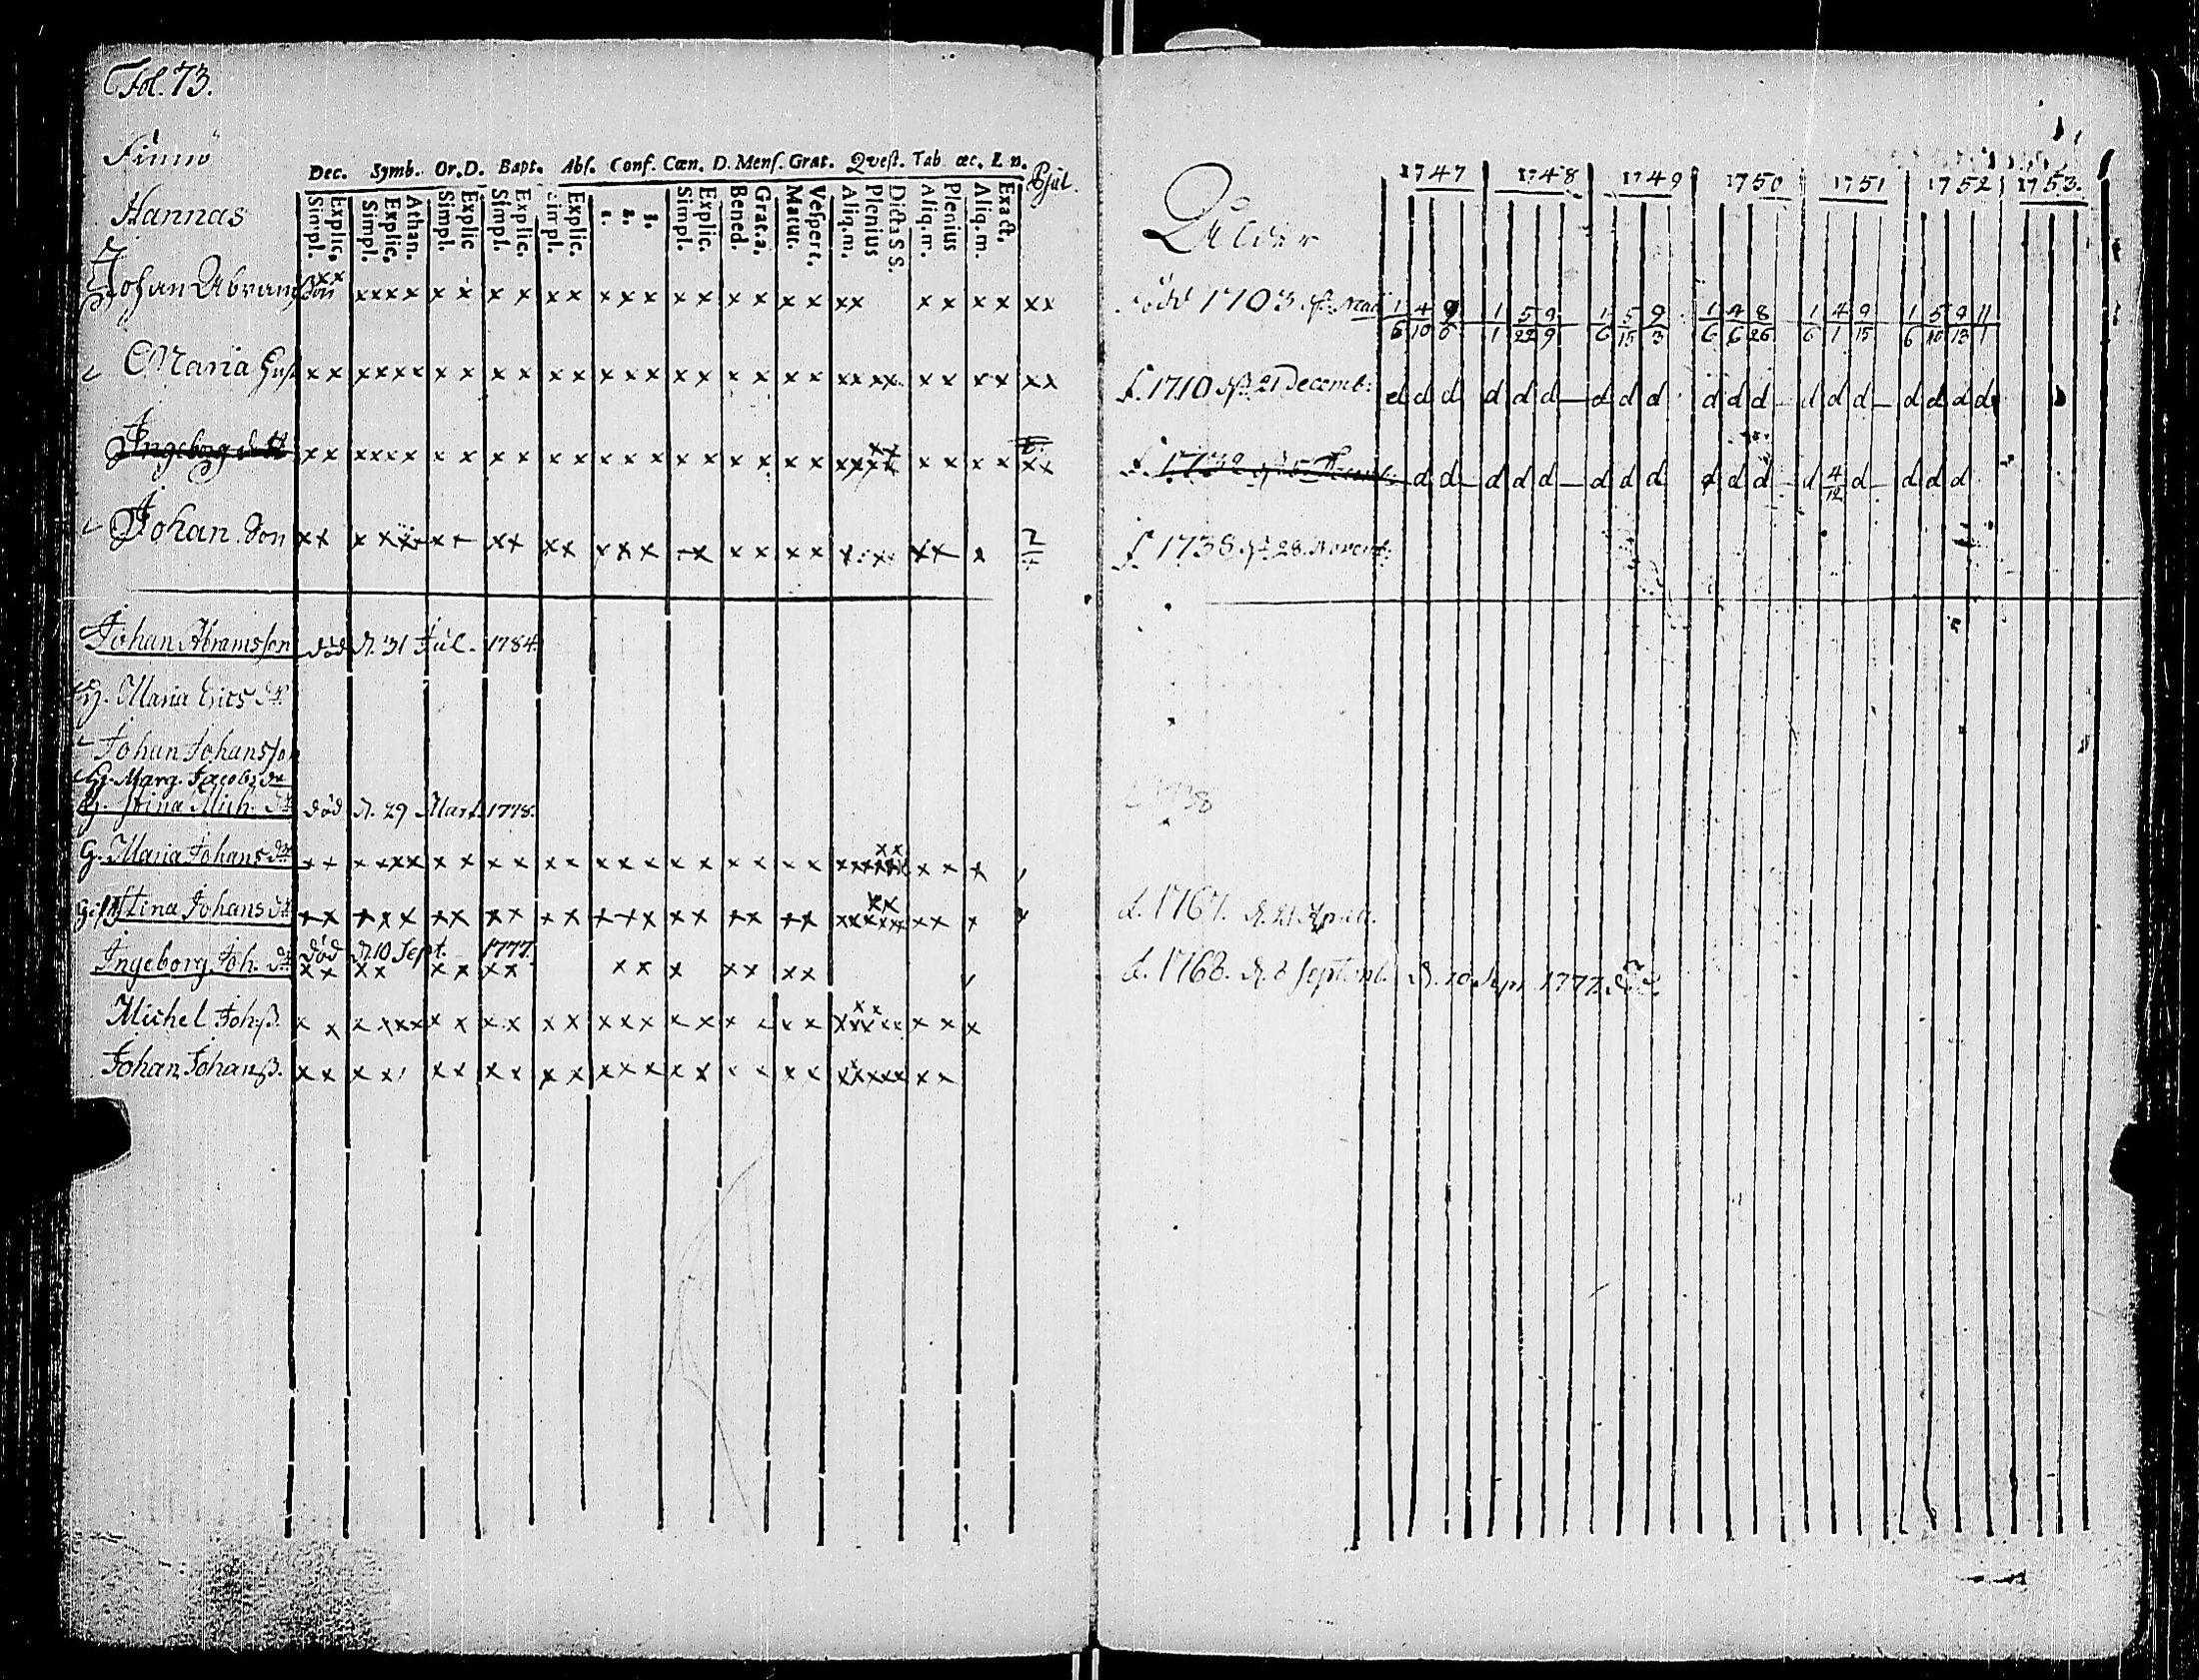 Fol. 73.
Finnö
Hannas
Dec. Symb. Or.D. Bapt. Abs. Conf. Cœn. D. Mens. Grat. Qvest. Tab œc. E n. Psal.
Simpl. Explic. Simpl. Explic. Athan. Simpl. Explic Simpl. Explic. Simpl. Explic. 1. 2. 3. Simpl. Explic. Bened. Grat.a. Matut. Vespert. Aliq.m. Plenius Dicta S S. Aliq.m. Plenius Aliq.m. Exact.
Johan Abrams Son
Maria
Ingeborg
Johan Son
Johan Abramsson död d. 31 Jul. 1784.
H. Maria Erics dr
Johan Johansson
H. Marg. Jacobs dr
H. Stina Mich. dr död d. 29 Mart. 1778.
G. Maria Johans dr
Gift Stina Johans dr
död d. 10 Sept. 1777.
Ingeborg Joh. dr
Michel Johß.
Johan Johanß.
Ålder 1747 1748 1749 1750 1751 1752 1753.
född 1703
1 4 9 1 5 9 1 5 9 1 4 8 1 4 9 1 5 9 11
6 10 6 1 22 9 6 15 3 6 6 26 6 1 15 6 10 13 1
f. 1710 21 Decemb: d d d d d d d d d d d d d d d d d d d
f. 1732 d d d d d d d d d d d d 4/12 d d d d
f. 1738 28. Novemb:
1738
f. 1767. d. 21 April.
f. 1768. d. 8 Septemb. d. 10 Sept 1777. död.